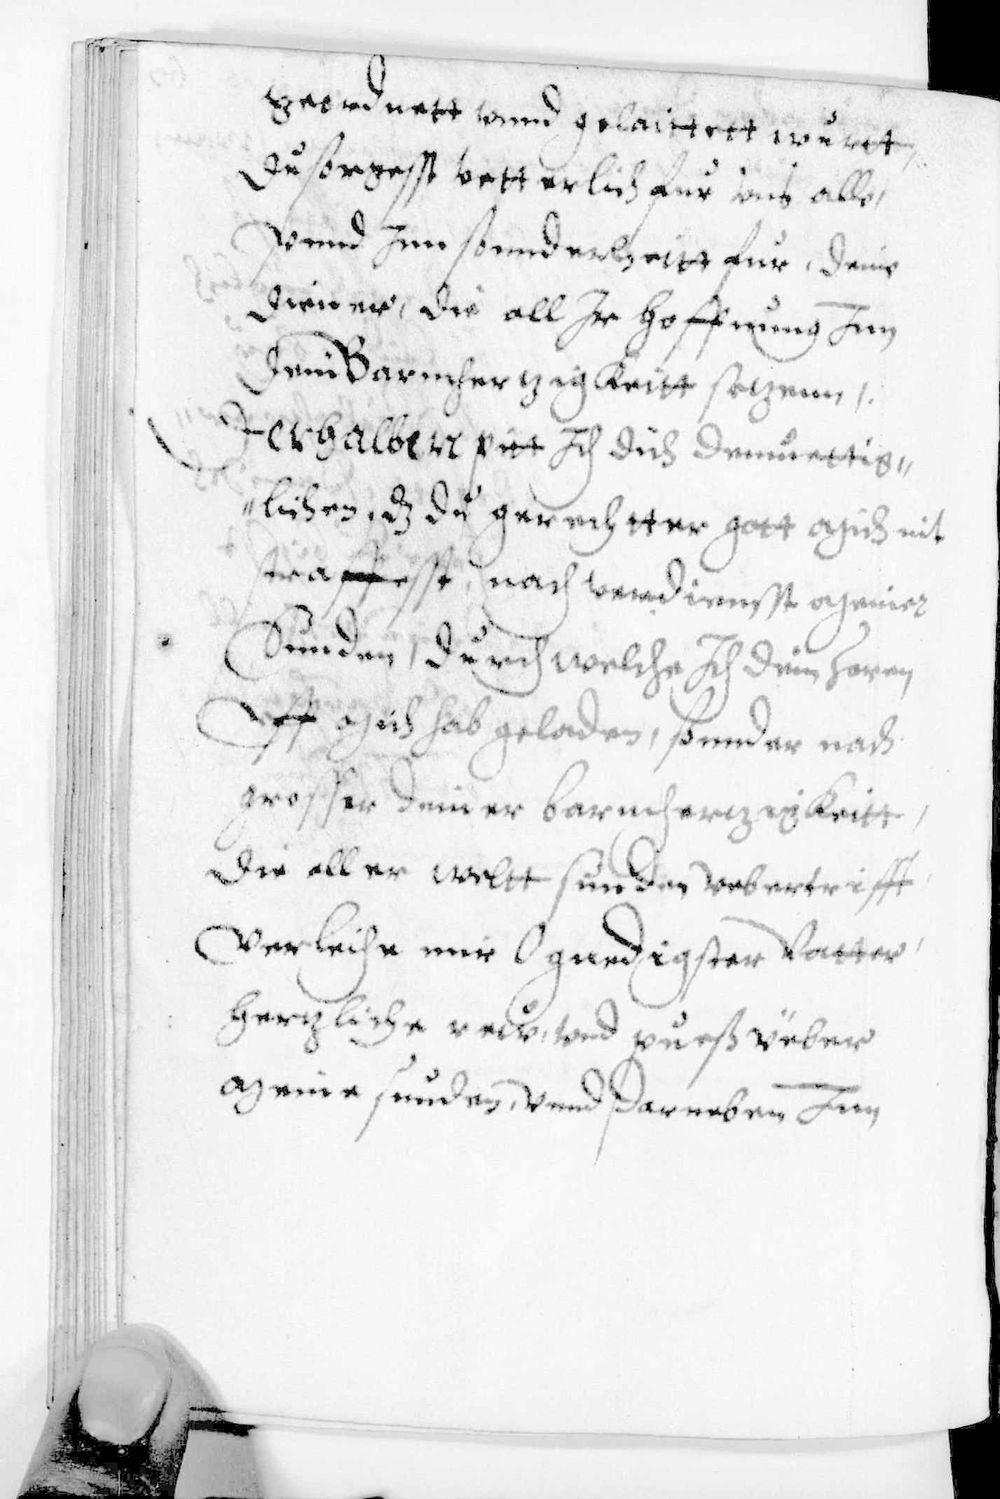 geordnett vnnd gelaittett wurtt,
Du sorgesst vetterlich fur vns alle,
Vnnd Inn sonnderheitt fur, deine
Diener, die all Ir hoffnung Inn
Dein Barmhertzigkeitt setzenn,.
Derhalben pitt Ich dich demuettig„
„lichen, dz du gerechtter gott mich nit
straffesst, nach verdiensst meiner
Sunden, durch welche Ich dein Zoren
Vff mich hab geladen, sonnder nach
grosser deiner barmhertzigkeitt,
die aller weltt sunden vebertrifft,
Verleihe mir O gnedigster Vatter,
hertzliche reuw, vnd pueß vber
meine sunden, Vnnd darneben Inn